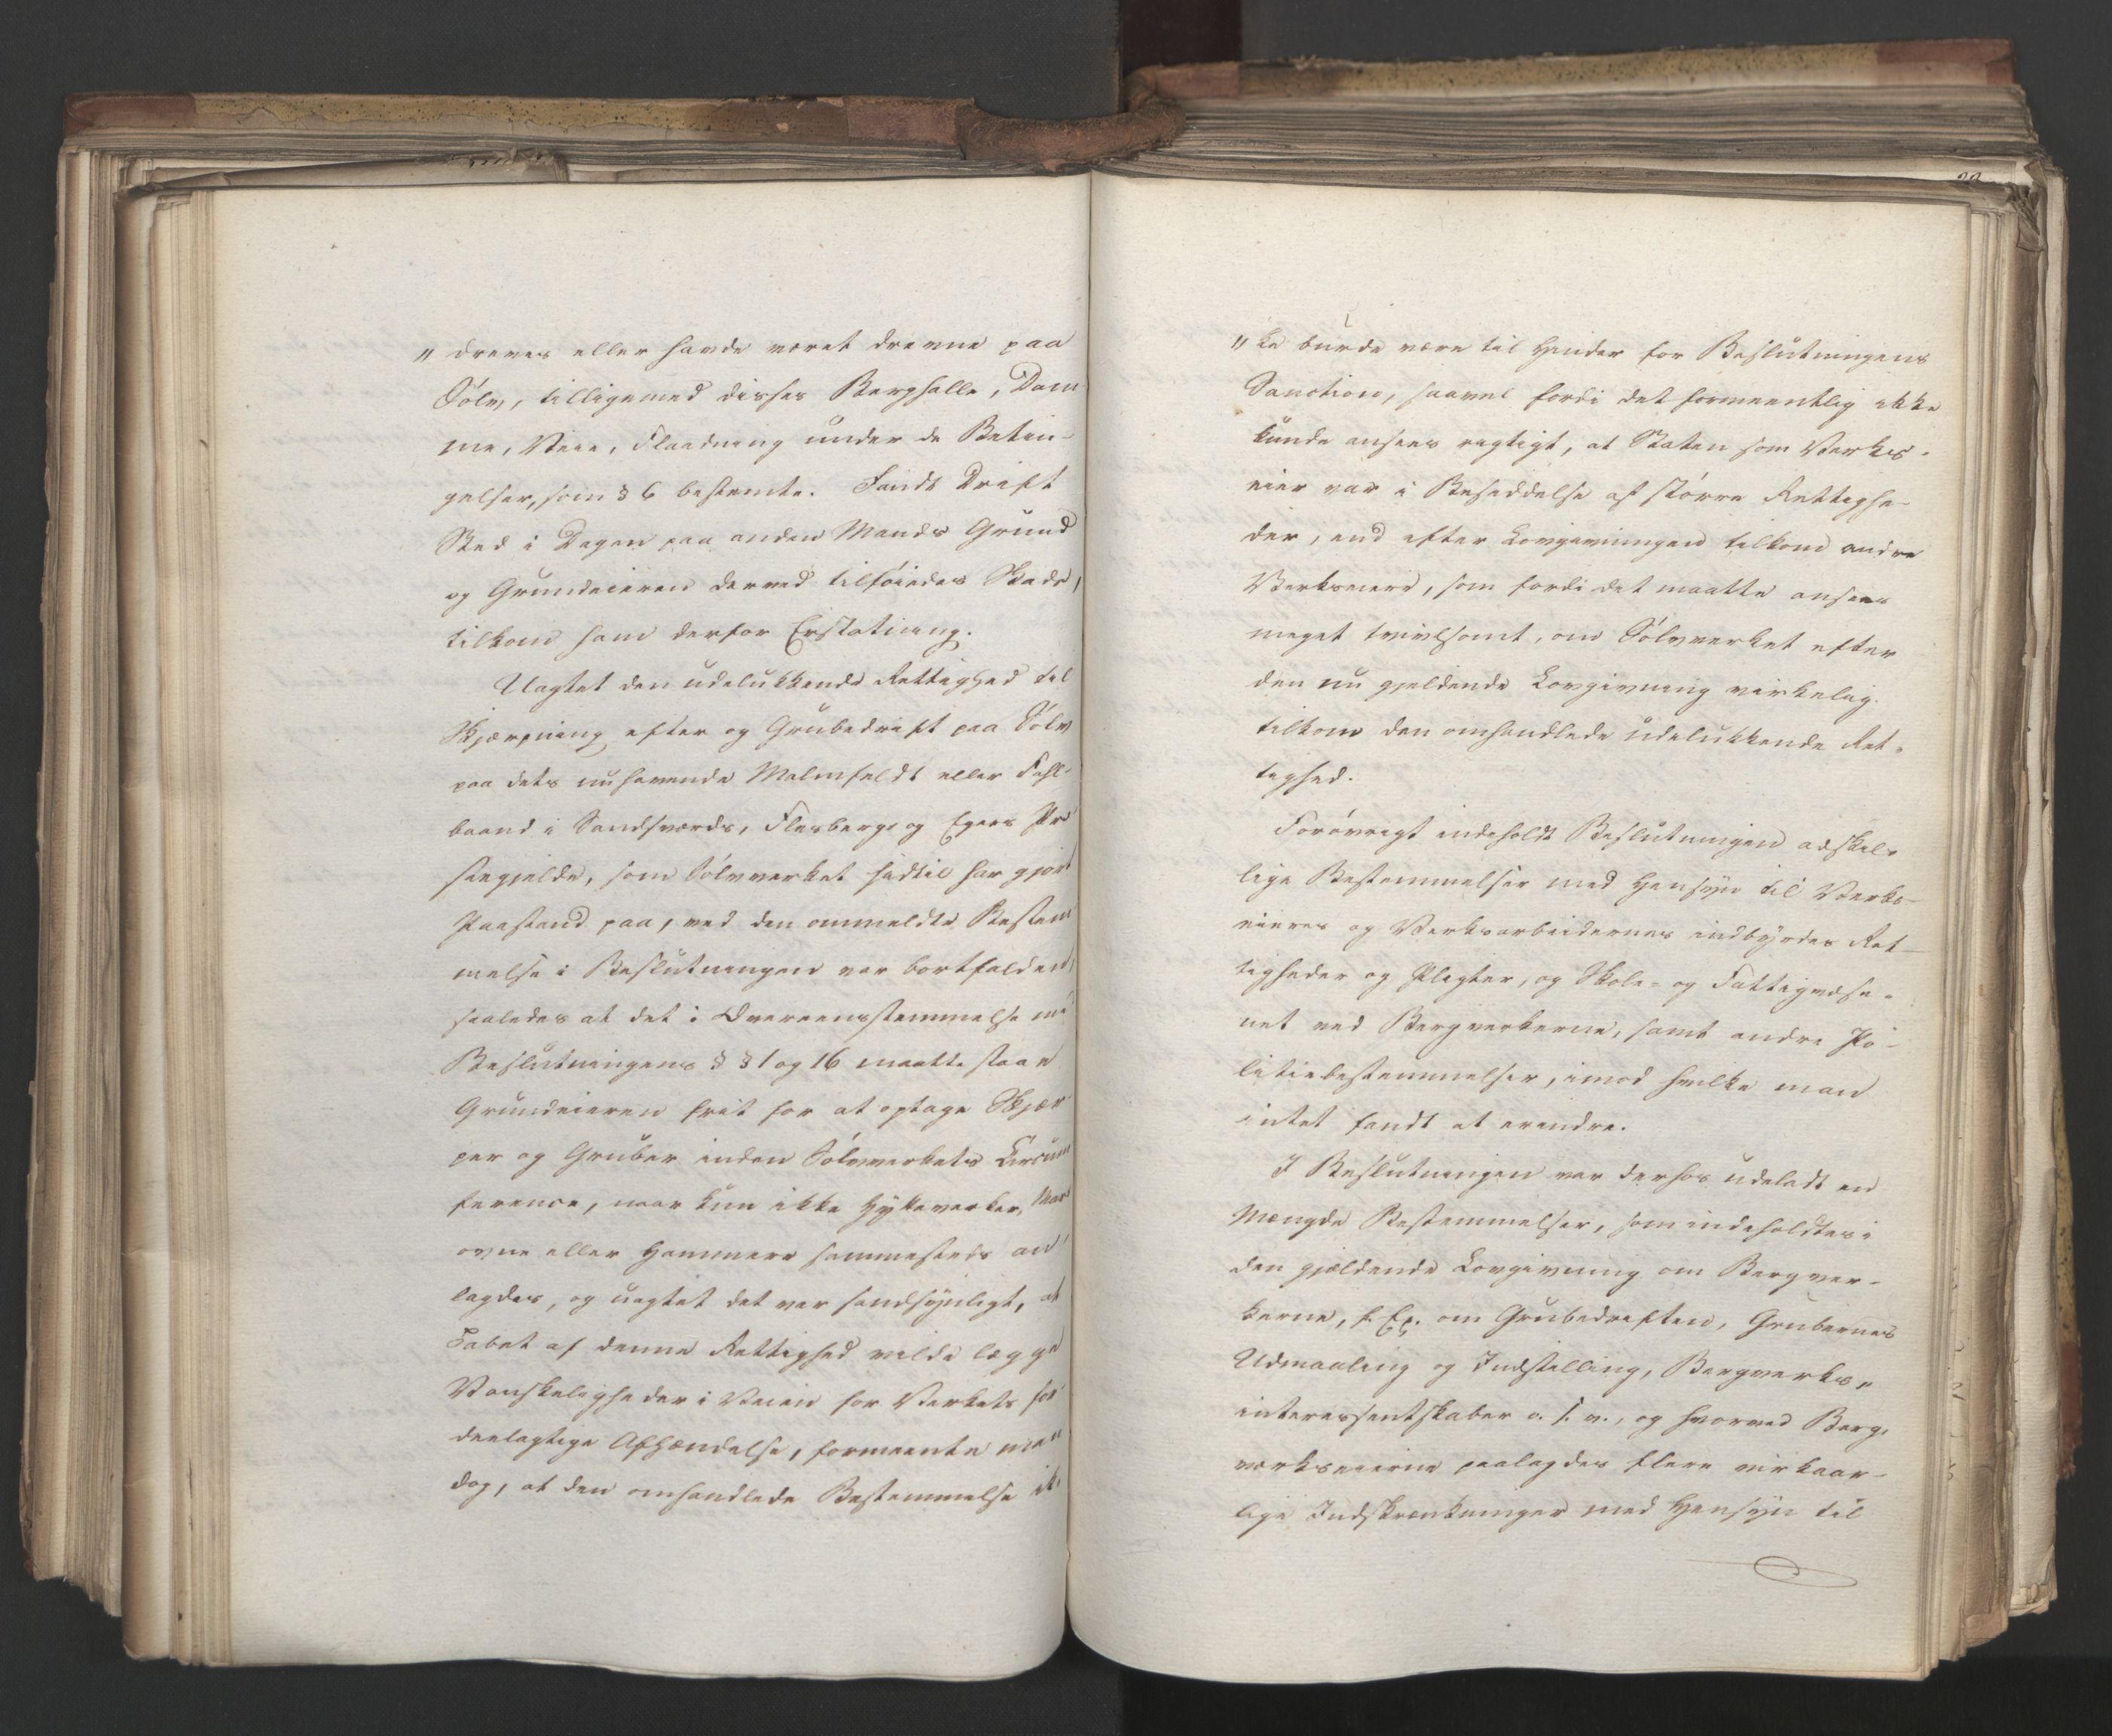 „ dreves eller havde været drevne paa
Sølv, tilligemed disses Berghalle, Dam
me, Veie, Flaadning under de Betin-
gelser, som § 6 bestemte. Fandt Drift
Sted i Dagen paa anden Mands Grund
og Grundeieren derved tilføiedes Skade,
tilkom ham derfor Erstatning.
Uagtet den udelukkende Rettighed til
Skjærpning efter og Grubedrift paa Sølv
paa dets nuhavende Malmfeldt eller Fahl-
baand i Sandsværds, Flesbergs og Egers Præ
stegjelde, som Sølvverket hidtil har gjort
Paastand paa, ved den ommeldte Bestem
melse i Beslutningen var bortfalden,
saaledes at det i Overeensstemmelse me
Beslutningens §§ 1 og 16 maatte staae
Grundeieren frit for at optage Skjær
per og Gruber inden Sølvverkets Circum
ference, naar kun ikke Hytteverker, Mas
ovne eller Hammere sammesteds an
lagdes, og uagtet det var sandsynligt, at
Tabet af denne Rettighed vilde lægge
Vanskeligheder i Veien for Verkets for
deelagtige Afhændelse, formeente man
dog, at den omhandlede Bestemmelse ik-
„ ke burde være til Hinder for Beslutningens
Sanction, saavel fordi det formeentlig ikke
kunde ansees rigtigt, at Staten som Verks-
eier var i Besiddelse af større Rettighe-
der, end efter Lovgivningen tilkom andre
Verkseiere, som fordi det maatte ansees
meget tvivlsomt, om Sølvverket efter
den nu gjeldende Lovgivning virkelig
tilkom den omhandlede udelukkende Ret-
tighed.
Forøvrigt indeholdt Beslutningen adskil-
lige Bestemmelser med Hensyn til Verks-
eieres og Verksarbeidernes indbyrdes Ret-
tigheder og Pligter, og Skole- og Fattigvæse-
net ved Bergverkerne, samt andre Po-
litiebestemmelser, imod hvilke man
intet fandt at erindre.
I Beslutningen var derhos udeladt en
Mængde Bestemmelser, som indeholdtes i
den gjældende Lovgivning om Bergver-
kerne, f. Ex. om Grubedriften, Grubernes
Udmaaling og Indstilling, Bergverks-
interessentskaber o. s. v., og hvorved Berg-
verkseierne paalagdes flere vilkaar-
lige Indskrænkninger med Hensyn til